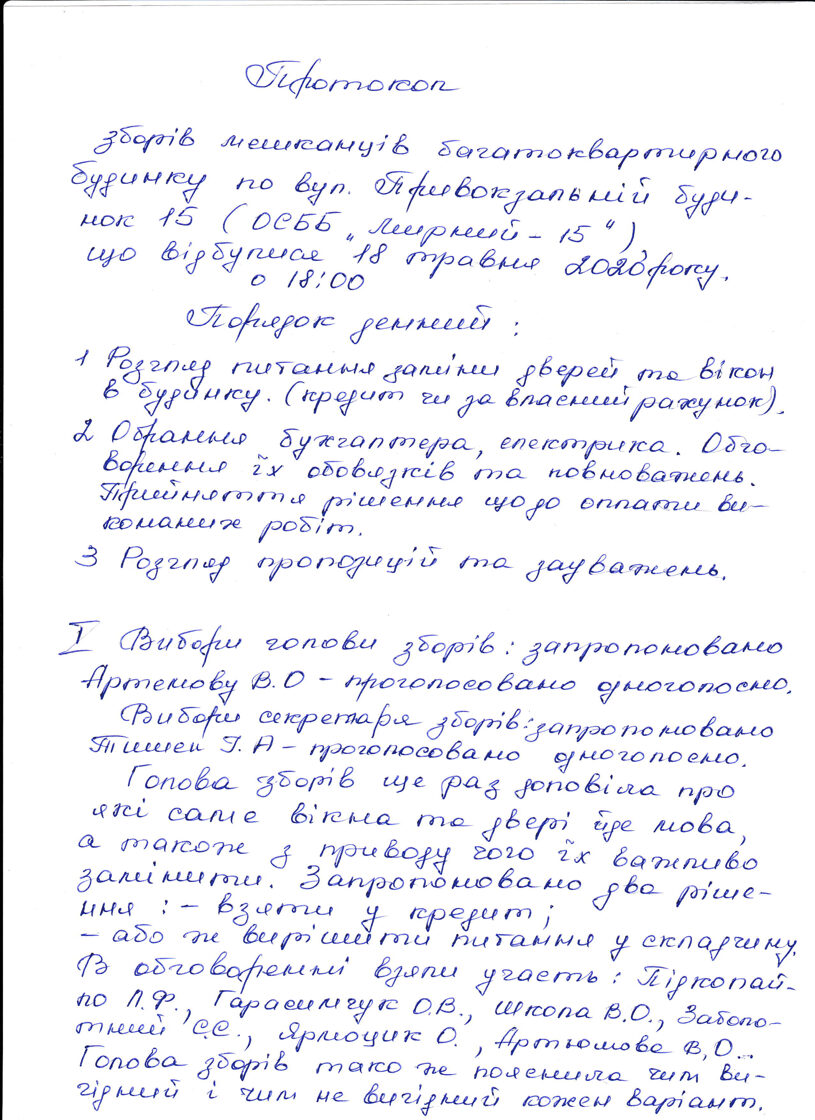 Протокол
зборів мешканців багатоквартирного
будинку по вул. Привокзальній буди-
нок 15 (ОСББ „Мирний - 15"),
що відбулися 18 травня 2020 року.
о 18:00
Порядок денний :
1 Розгляд питання заміни дверей та вікон
в будинку. (кредит чи за власний рахунок).
2 Обрання бухгалтера, електрика. Обго-
ворення їх обовязків та повноважень.
Прийняття рішення щодо оплати ви-
конаних робіт.
3 Розгляд пропозицій та зауважень.
I Вибори голови зборів : запропоновано
Артемову В.О - проголосовано одноголосно.
Вибори секретаря зборів: запропоновано
Тишек І. А - проголосовано одноголосно.
Голова зборів ще раз доповіла про
які саме вікна та двері йде мова,
а також з приводу чого їх важливо
замінити. Запропоновано два ріше-
ння : - взяти у кредит;
- або ж вирішити питання у складчину.
В обговоренні взяли участь : Підкопай-
ло Л.Ф., Гарасимчук О.В., Школа В.О., Заболо-
тний С.С., Ярмоцик О. , Артюмова В,О..
Голова зборів тако ж пояснила чим ви-
гідний і чим не вигідний кожен варіант.